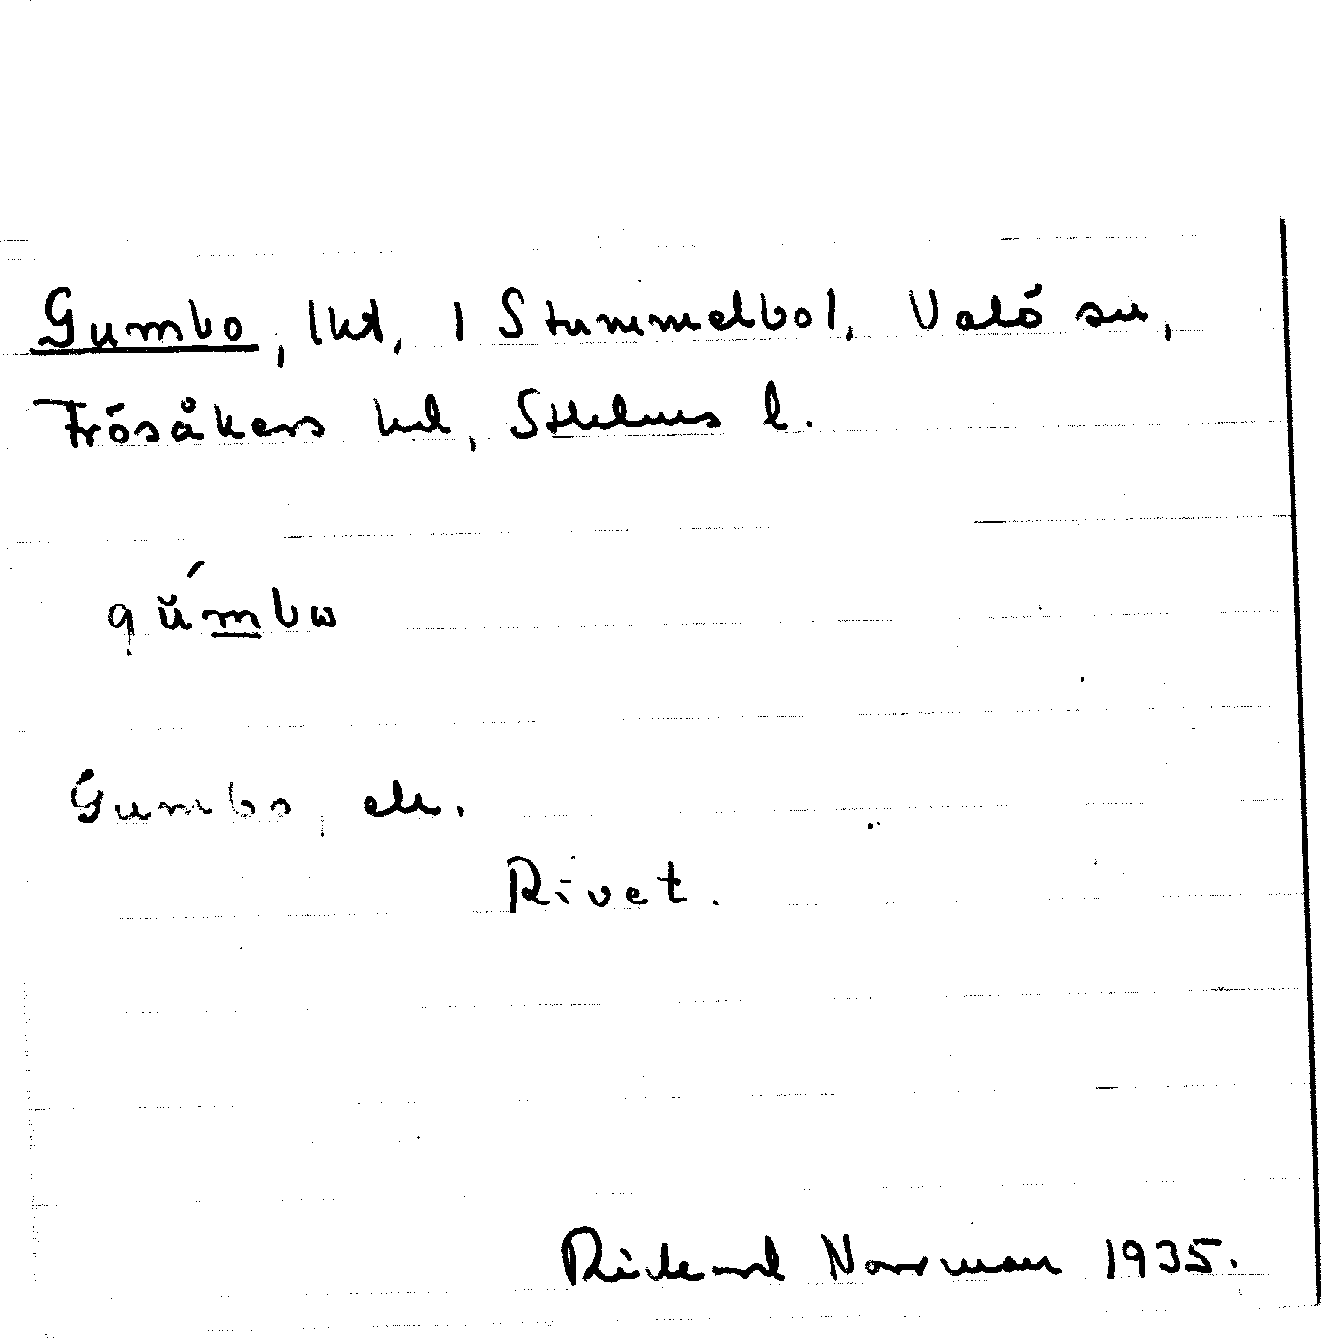 Gumbo, lht, i Stummelbol, Valö sn,
Frösåkers hd, Sthlms l.
gŭ́mbω
Gumbo, ele.
Rivet.
Rickard Norrman 1935.